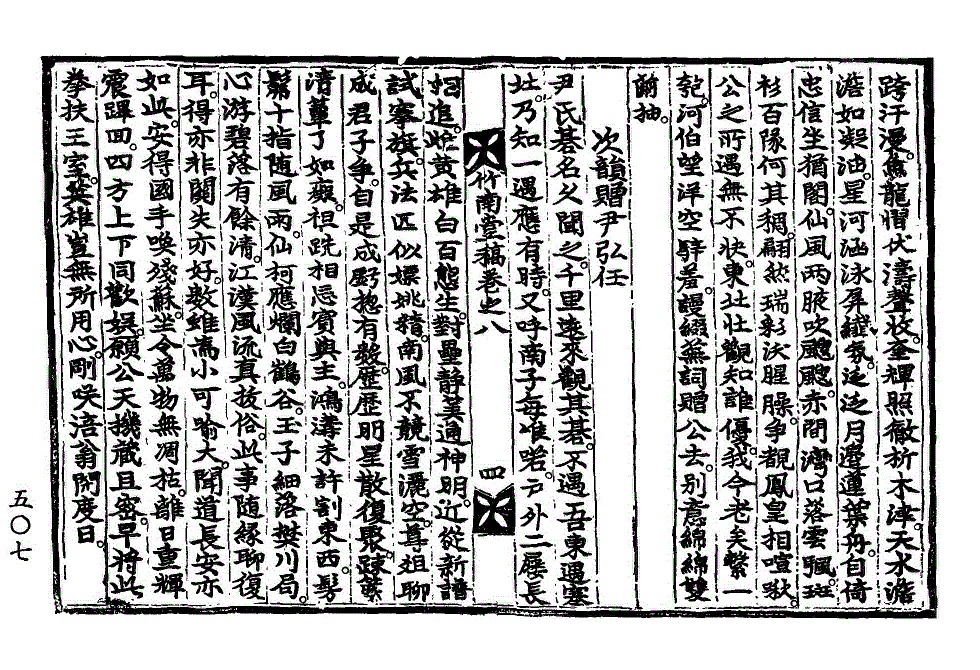 跨汗漫。魚龍慴伏濤聲收。金輝照徹析木津。天水澹
澹如凝油。星河涵泳屏纎氛。泛泛月邉蓮葉舟。自倚
忠信坐猶閣。仙風兩腋吹颼颼。赤間灣口落雲颿。斑
衫百隊何其稠。翩然瑞彩沃腥臊。争覩鳳皇相喧啾。
公之所遇無不快。東北壮觀知誰優。我今老矣繫一
匏。河伯望洋空辞羞。謾綴蕪詞贈公去。别意綿綿雙
蘭抽。
次韻贈尹弘任
尹氏碁名久聞之。千里遠來觀其碁。不遇吾東遇塞
北。乃知一遇應有時。又呼南子每唯喏。戸外二屐長
竹南堂稿卷之八
四
招追。蛇黄雄白百態生。對壘静莫通神明。近從新譜
試搴旗。兵法匹似嫖姚精。南風不競雪灑空。尊俎聊
成君子争。自是成虧摠有數。歴歴明星散復聚。踈簾
清簟了如癡。袒跣相忘賓與主。鴻溝未許割東西。髣
鬃十指随風雨。仙柯應爛白鶴谷。玉子細落樊川局。
心游碧落有餘清。江漢風流真拔俗。此事随縁聊復
耳。得亦非關失亦好。數雖雋小可喻大。聞道長安亦
如此。安得國手喚殘蘇。坐令萬物無凋枯。離日重輝
震躔回。四方上下同歡娱。願公天機蔵且密。早将此
拳扶王室。英雄豈無所用心。剛咲涪翁閑度日。
五〇七